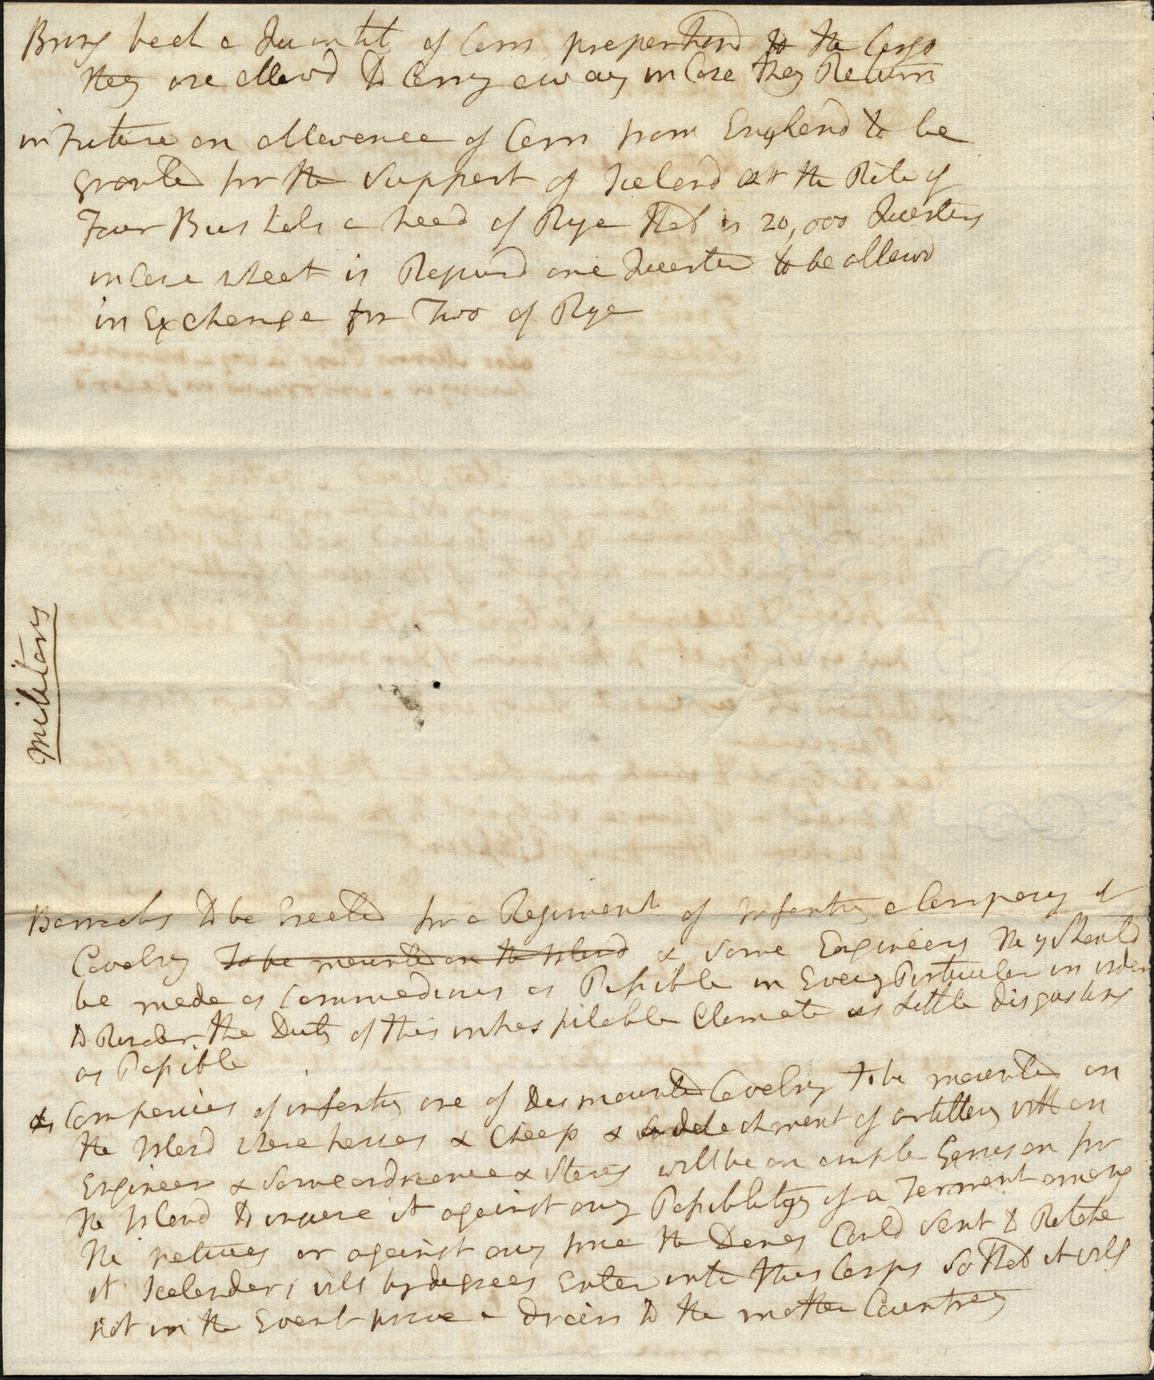 Bring back a Quantity of Corn proportiond to the Cargo
they are allowd to Carry away in Case they Return
in Future an allowance of Corn from England to be
granted for the Support of Iceland at the Rate of
Four Bushels a head of Rye that is 20,000 Quarters
in Case wheat is Requird one Quarter to be allowd
in Exchange for Two of Rye
Military
Barracks to be Erected for a Regiment of Infantry a Company of
Cavalry To be mounted on the Island & some Engineers they should
be made as Commodious as Possible in Every Particular in order
to Render the Duty of this inhospitable Climate as Little disgusting
as Possible
Companies of infantry one of Dismounted Cavalry to be mounted on
the Island where horses & Cheap & a detachment of artillery with an
Engineer & some ordnance & Stores will be an ample Garrison for
the Island to insure it against any Possibility of a Ferment among
the natives or against any force the Danes Could send to Retake
it Icelanders will by degrees Enter into this Corps so that it will
not in the Event prove a drain to the mother Country